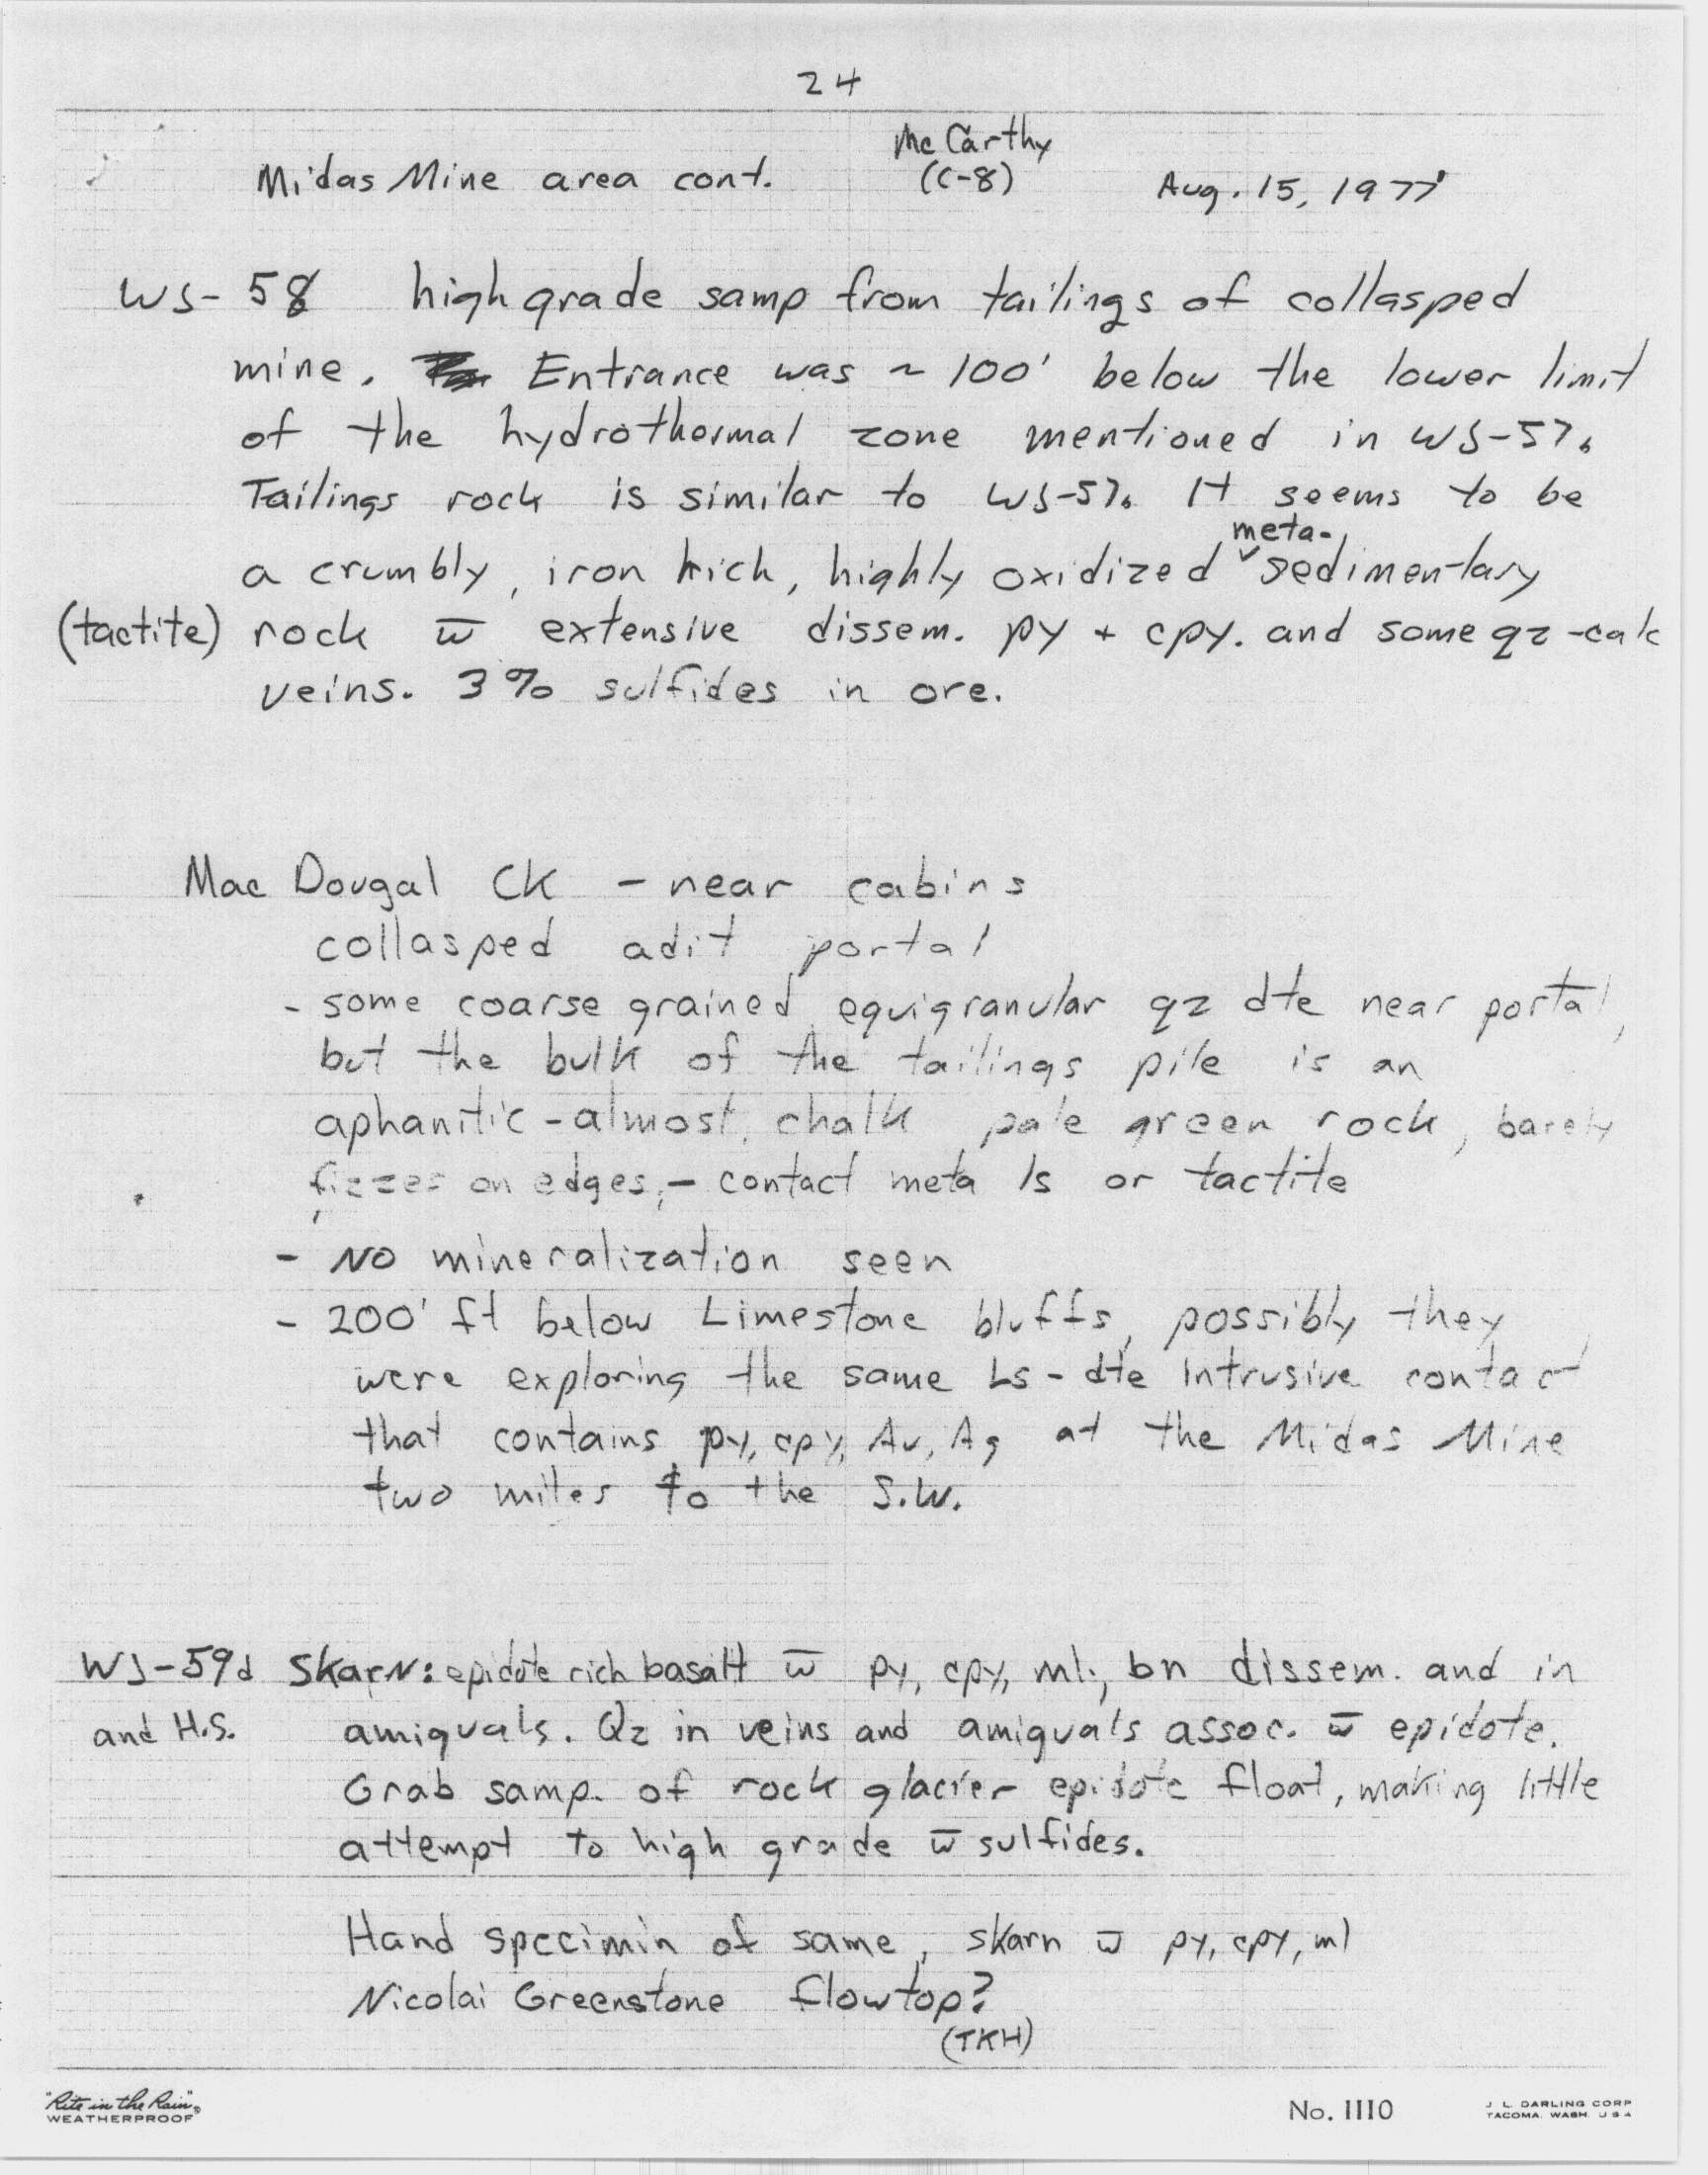 24
McCarthy
Midas Mine area cont. (C-8) Aug. 15, 1977
WS-58 high grade samp from tailings of collasped
mine. Entrance was ~ 100' below the lower limit
of the hydrothermal zone mentioned in WS-57.
Tailings rock is similar to WS-57. It seems to be
meta-
a crumbly, iron rich, highly oxidized sedimentary
(tactite) rock w̅ extensive dissem. py + cpy. and some qz-calc
veins. 3% sulfides in ore.
Mac Dougal Ck - near cabins
collasped adit portal
- some coarse grained equigranular qz dte near portal,
but the bulk of the tailings pile is an
aphanitic - almost chalk pale green rock, barely
fizzes on edges, - contact meta ls or tactite
- NO mineralization seen
- 200' ft below Limestone bluffs, possibly they
were exploring the same Ls-dte intrusive contact
that contains py, cpy, Au, Ag at the Midas Mine
two miles to the S.W.
WS-59d Skarn: epidote rich basalt w̅ py, cpy, ml, bn dissem. and in
and H.S. amiguals. Qz in veins and amiguals assoc. w̅ epidote.
Grab samp. of rock glacier epidote float, making little
attempt to high grade w̅ sulfides.
Hand specimin of same, skarn w̅ py, cpy, ml
Nicolai Greenstone flowtop?
(TKH)
"Rite in the Rain"
WEATHERPROOF
No. 1110
J. L. DARLING CORP
TACOMA, WASH. U S A